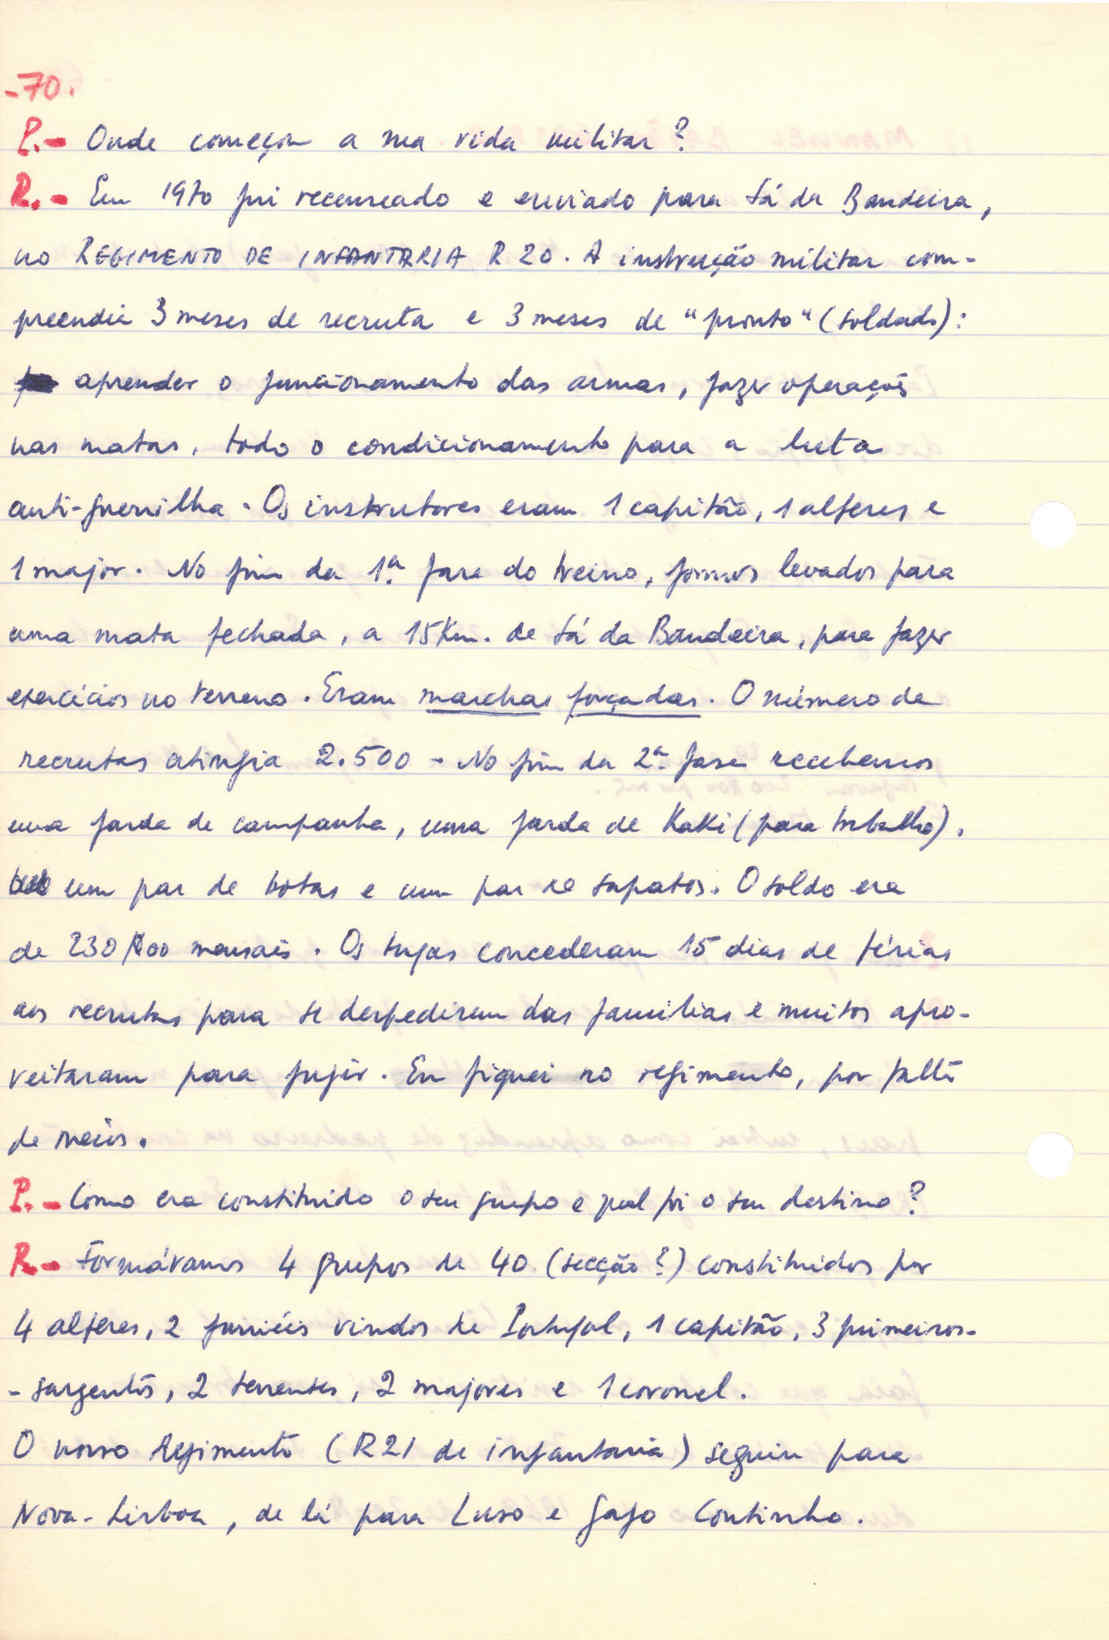 -70.
P.- Onde começou a sua vida militar?
R.- Em 1970 fui recenseado e enviado para Sá da Bandeira,
no REGIMENTO DE INFANTARIA R 20. A instrução militar com-
preendia 3 meses de recruta e 3 meses de "pronto" (soldado):
aprender o funcionamento das armas, fazer operações
nas matas, todo o condicionamento para a luta
anti-guerrilha. Os instrutores eram 1 capitão, 1 alferes e
1 major. No fim da 1ª fase do treino, fomos levados para
uma mata fechada, a 15 Km. de Sá da Bandeira, para fazer
exercícios no terreno. Eram marchas forçadas. O número de
recrutas atingia 2.500 - No fim da 2ª fase recebemos
uma farda de campanha, uma farda de Kaki (para trabalho),
um par de botas e um par de sapatos. O soldo era
de 230$00 mensais. Os tugas concederam 15 dias de férias
aos recrutas para se despedirem das famílias e muitos apro-
veitaram para fugir. Eu fiquei no regimento, por falta
de meios.
P.- Como era constituido o seu grupo e qual foi o seu destino?
R.- Formávamos 4 grupos de 40 (secção?) constituidos por
4 alferes, 2 furriéis vindos de Portugal, 1 capitão, 3 primeiros-
-sargentos, 2 tenentes, 2 majores e 1 coronel.
O nosso Regimento (R21 de infantaria) seguiu para
Nova-Lisboa, de lá para Luso e Gago Coutinho.